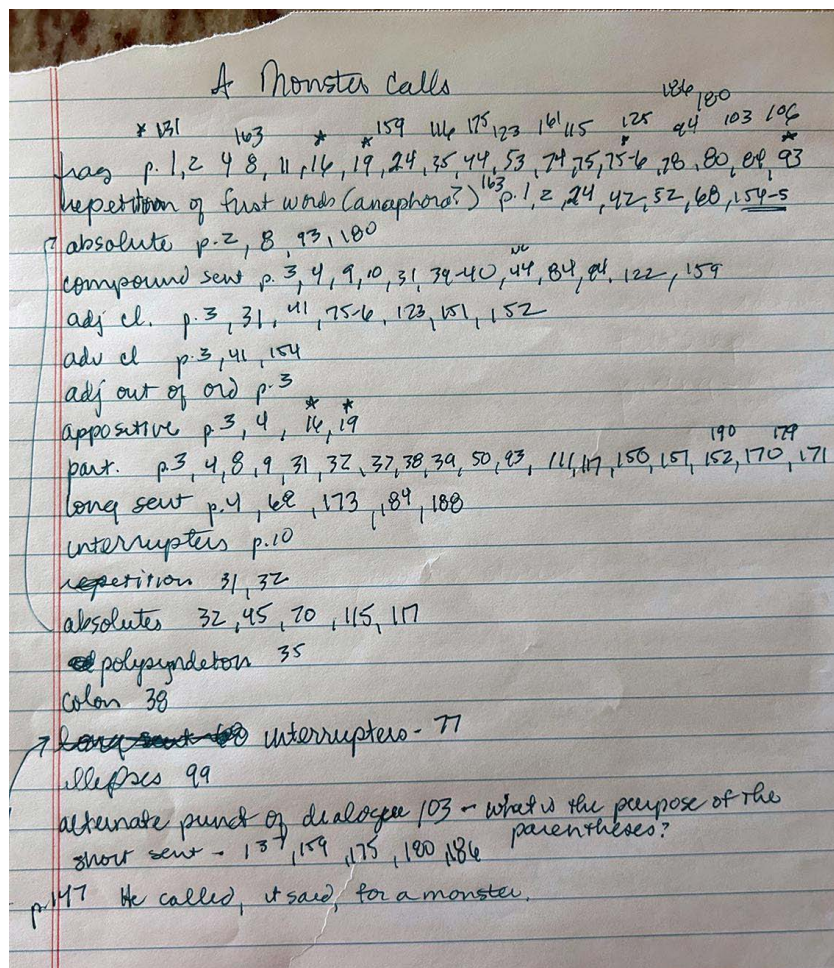 A Monster Calls
186 180
* 131 163 * * 159 116 175 123 161 115 125 94 103 106
frag p. 1, 2 4 8, 11, 16, 19, 24, 35, 44, 53, 74, 75, 75-6, 78, 80, 89, 93
repetition of first words (anaphora?) 163 p. 1, 2, 24, 42, 52, 68, 154-5
absolute p. 2, 8, 93, 180
compound sent p. 3, 4, 9, 10, 31, 39-40, 44, 84, 122, 159
adj cl. p. 3, 31, 41, 75-6, 123, 151, 152
adv cl p. 3, 41, 154
adj out of ord p. 3
* *
appositive p. 3, 4, 16, 19
190 179
part. p. 3, 4, 8, 9, 31, 32, 37, 38, 39, 50, 93, 111, 117, 150, 151, 152, 170, 171
long sent p. 4, 68, 173, 184, 188
interrupters p. 10
repetition 31, 32
absolutes 32, 45, 70, 115, 117
polysyndeton 35
colon 38
interrupters - 77
ellipses 99
alternate punct of dialogue 103 - what is the purpose of the
parentheses?
short sent - 137, 159, 175, 180, 186
p. 147 He called, it said, for a monster.